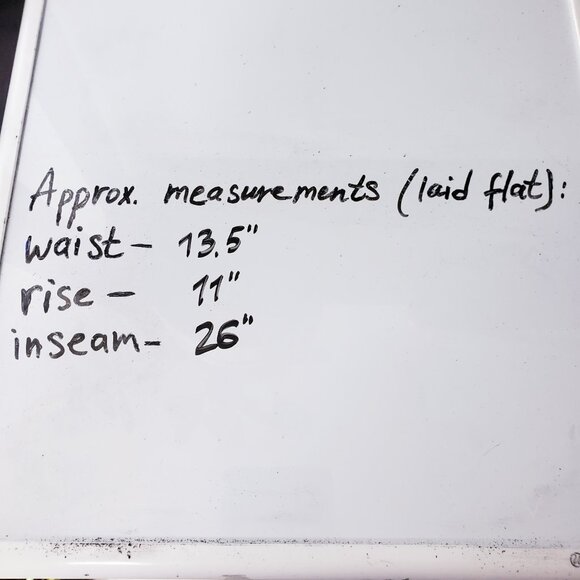 Approx. measurements (laid flat):
waist - 13.5"
rise - 11"
inseam - 26"